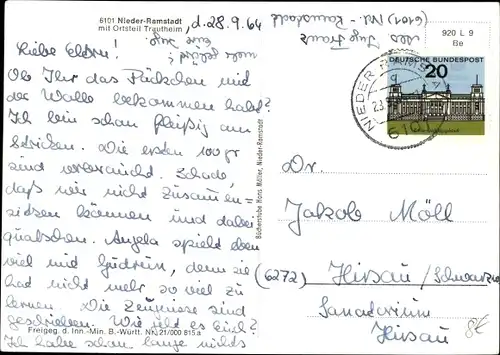 6101 Nieder-Ramstadt
mit Ortsteil Trautheim
, d. 28.9.64
Eure Inge
(6101) Nd.-Ramstadt
920 L 9
Be
DEUTSCHE BUNDESPOST
20
NIEDER-RAMSTADT
Liebe Eltern!
Ob Ihr das Päckchen mit
der Wolle bekommen habt?
Ich bin schon fleißig am
Stricken. Die ersten 100 gr
sind verbraucht. Schade,
daß wir nicht zusammen-
sitzen können und dabei
quatschen. Angela spielt eben
viel mit Gudrun, denn sie
hat nicht mehr so viel zu
lernen. Die Zeugnisse sind
geschrieben. Wie geht es Euch?
Ich habe schon lange nichts
Freigeg. d. Inn.-Min. B.-Württ. Nr. 21/000 815 a
Bücherstube Hans Müller, Nieder-Ramstadt
Dr.
Jakob Möll
(6272) Hirsau/Schwarzw
Sanatorium
Hirsau
8€